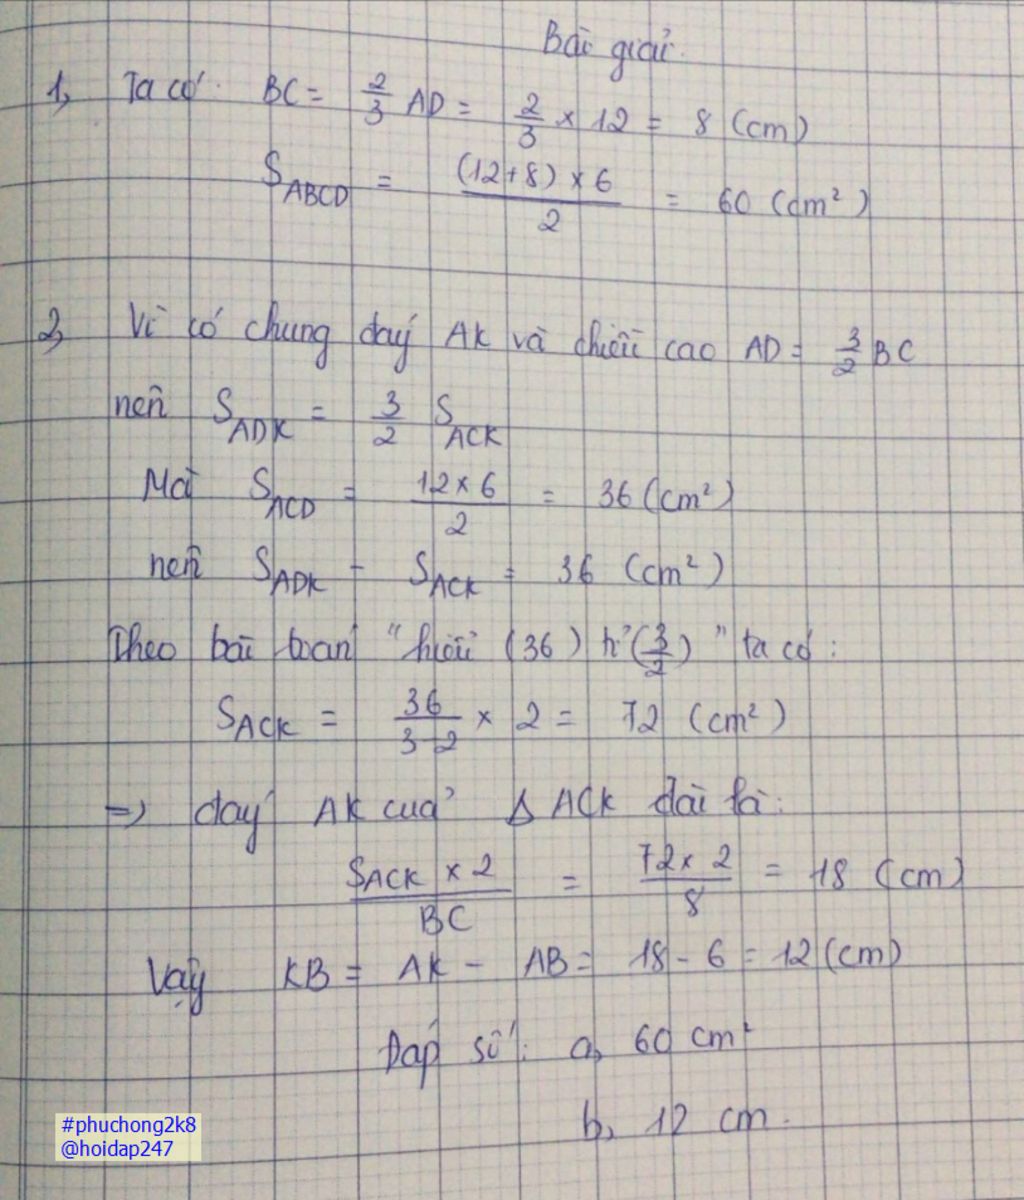 Bài giải.
1, Ta có: BC = 2/3 AD = 2/3 × 12 = 8 (cm)
S_ABCD = (12+8) × 6 / 2 = 60 (cm²)
2, Vì có chung đáy AK và chiều cao AD = 3/2 BC
nên S_ADK = 3/2 S_ACK
Mà S_ACD = 12 × 6 / 2 = 36 (cm²)
nên S_ADK - S_ACK = 36 (cm²)
Theo bài toán "hiệu (36) tỉ (3/2)" ta có:
S_ACK = 36 / 3-2 × 2 = 72 (cm²)
=> đáy AK của Δ ACK dài là:
S_ACK × 2 / BC = 72 × 2 / 8 = 18 (cm)
Vậy KB = AK - AB = 18 - 6 = 12 (cm)
Đáp số: a, 60 cm²
b, 12 cm.
#phuchong2k8
@hoidap247